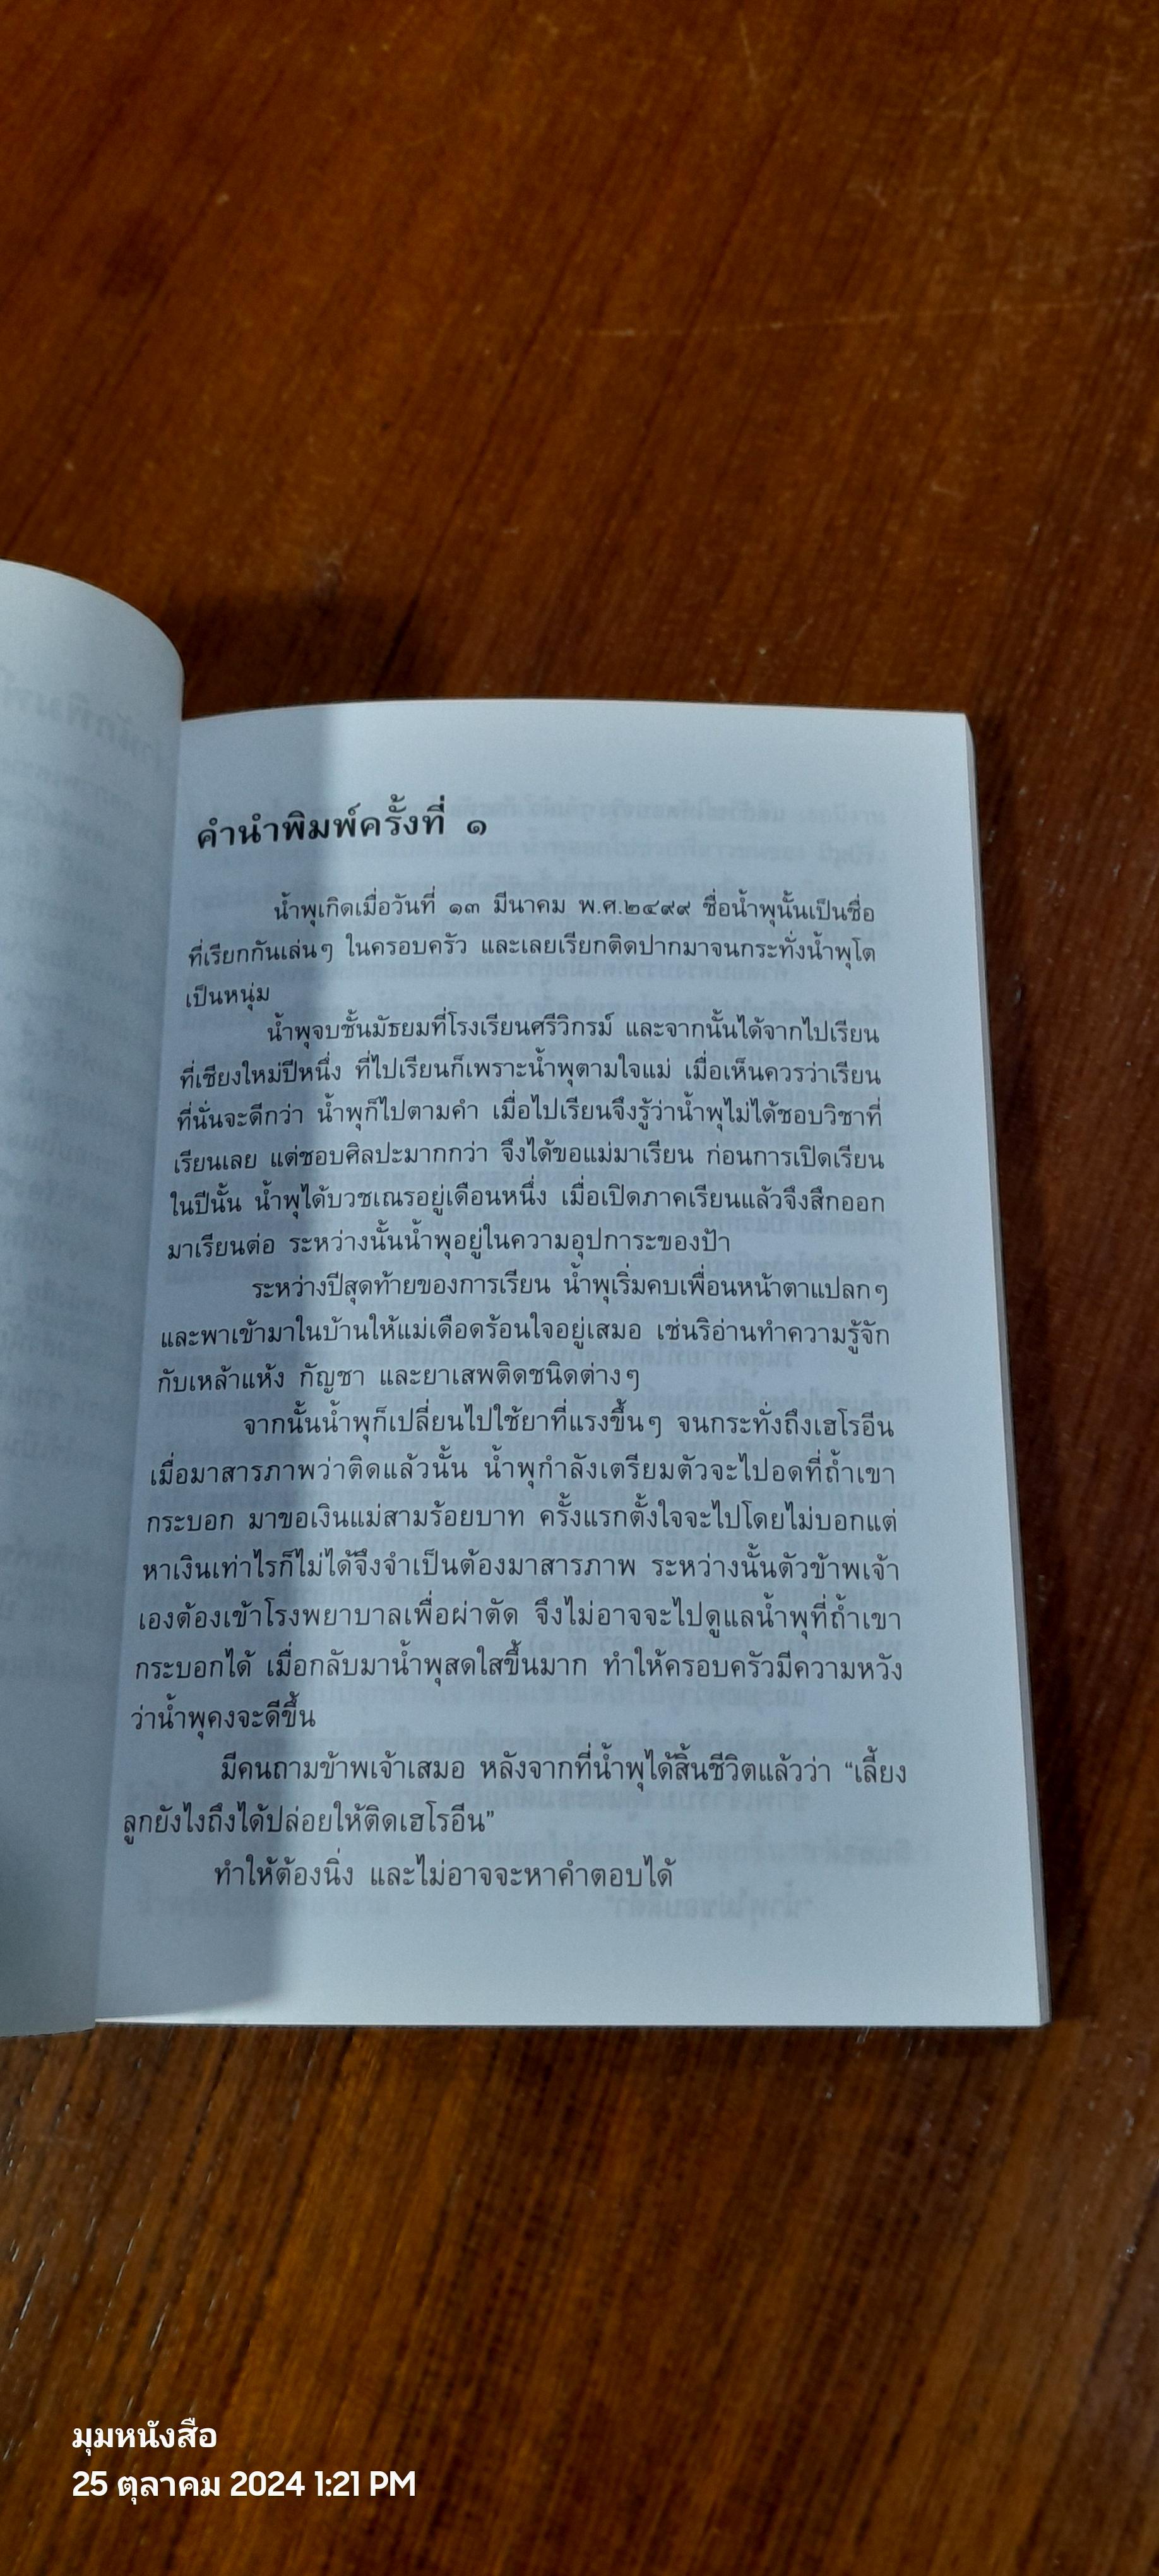 คำนำพิมพ์ครั้งที่ ๑
น้ำพุเกิดเมื่อวันที่ ๑๓ มีนาคม พ.ศ.๒๔๙๙ ชื่อน้ำพุนั้นเป็นชื่อ
ที่เรียกกันเล่นๆ ในครอบครัว และเลยเรียกติดปากมาจนกระทั่งน้ำพุโต
เป็นหนุ่ม
น้ำพุจบชั้นมัธยมที่โรงเรียนศรีวิกรม์ และจากนั้นได้จากไปเรียน
ที่เชียงใหม่ปีหนึ่ง ที่ไปเรียนก็เพราะน้ำพุตามใจแม่ เมื่อเห็นควรว่าเรียน
ที่นั่นจะดีกว่า น้ำพุก็ไปตามคำ เมื่อไปเรียนจึงรู้ว่าน้ำพุไม่ได้ชอบวิชาที่
เรียนเลย แต่ชอบศิลปะมากกว่า จึงได้ขอแม่มาเรียน ก่อนการเปิดเรียน
ในปีนั้น น้ำพุได้บวชเณรอยู่เดือนหนึ่ง เมื่อเปิดภาคเรียนแล้วจึงสึกออก
มาเรียนต่อ ระหว่างนั้นน้ำพุอยู่ในความอุปการะของป้า
ระหว่างปีสุดท้ายของการเรียน น้ำพุเริ่มคบเพื่อนหน้าตาแปลกๆ
และพาเข้ามาในบ้านให้แม่เดือดร้อนใจอยู่เสมอ เช่นริอ่านทำความรู้จัก
กับเหล้าแห้ง กัญชา และยาเสพติดชนิดต่างๆ
จากนั้นน้ำพุก็เปลี่ยนไปใช้ยาที่แรงขึ้นๆ จนกระทั่งถึงเฮโรอีน
เมื่อมาสารภาพว่าติดแล้วนั้น น้ำพุกำลังเตรียมตัวจะไปอดที่ถ้ำเขา
กระบอก มาขอเงินแม่สามร้อยบาท ครั้งแรกตั้งใจจะไปโดยไม่บอกแต่
หาเงินเท่าไรก็ไม่ได้จึงจำเป็นต้องมาสารภาพ ระหว่างนั้นตัวข้าพเจ้า
เองต้องเข้าโรงพยาบาลเพื่อผ่าตัด จึงไม่อาจจะไปดูแลน้ำพุที่ถ้ำเขา
กระบอกได้ เมื่อกลับมาน้ำพุสดใสขึ้นมาก ทำให้ครอบครัวมีความหวัง
ว่าน้ำพุคงจะดีขึ้น
มีคนถามข้าพเจ้าเสมอ หลังจากที่น้ำพุได้สิ้นชีวิตแล้วว่า “เลี้ยง
ลูกยังไงถึงได้ปล่อยให้ติดเฮโรอีน”
ทำให้ต้องนิ่ง และไม่อาจจะหาคำตอบได้
มุมหนังสือ
25 ตุลาคม 2024 1:21 PM